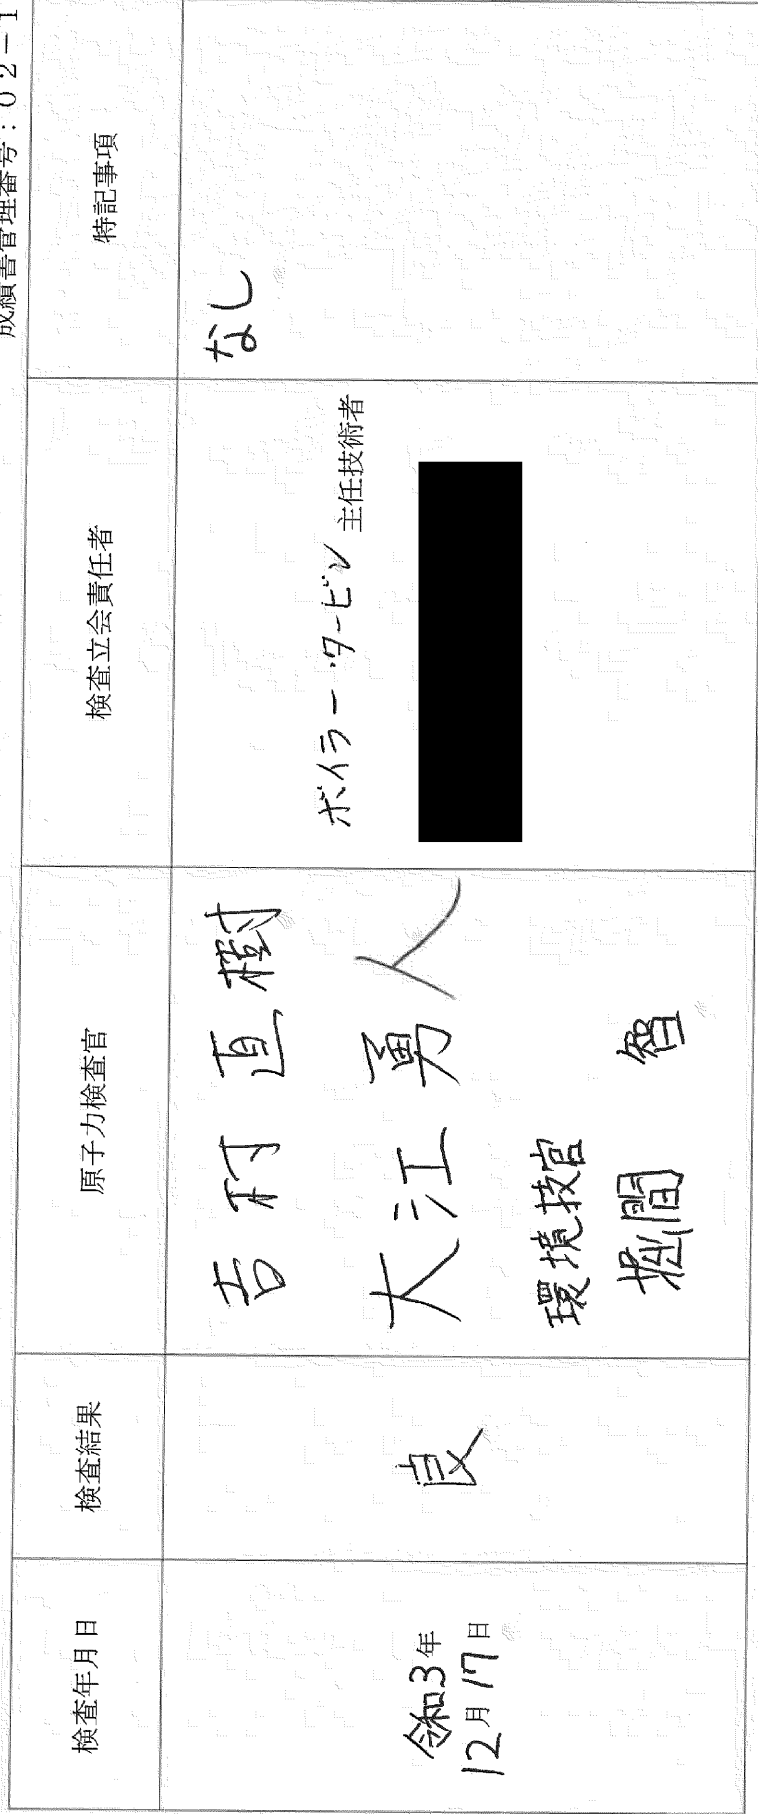 成績書管理番号：02－1
検査年月日
検査結果
原子力検査官
検査立会責任者
特記事項
令和3年
12月17日
良
吉村 直樹
大江 勇人
環境技官
堀間 智
ボイラー・タービン 主任技術者
なし